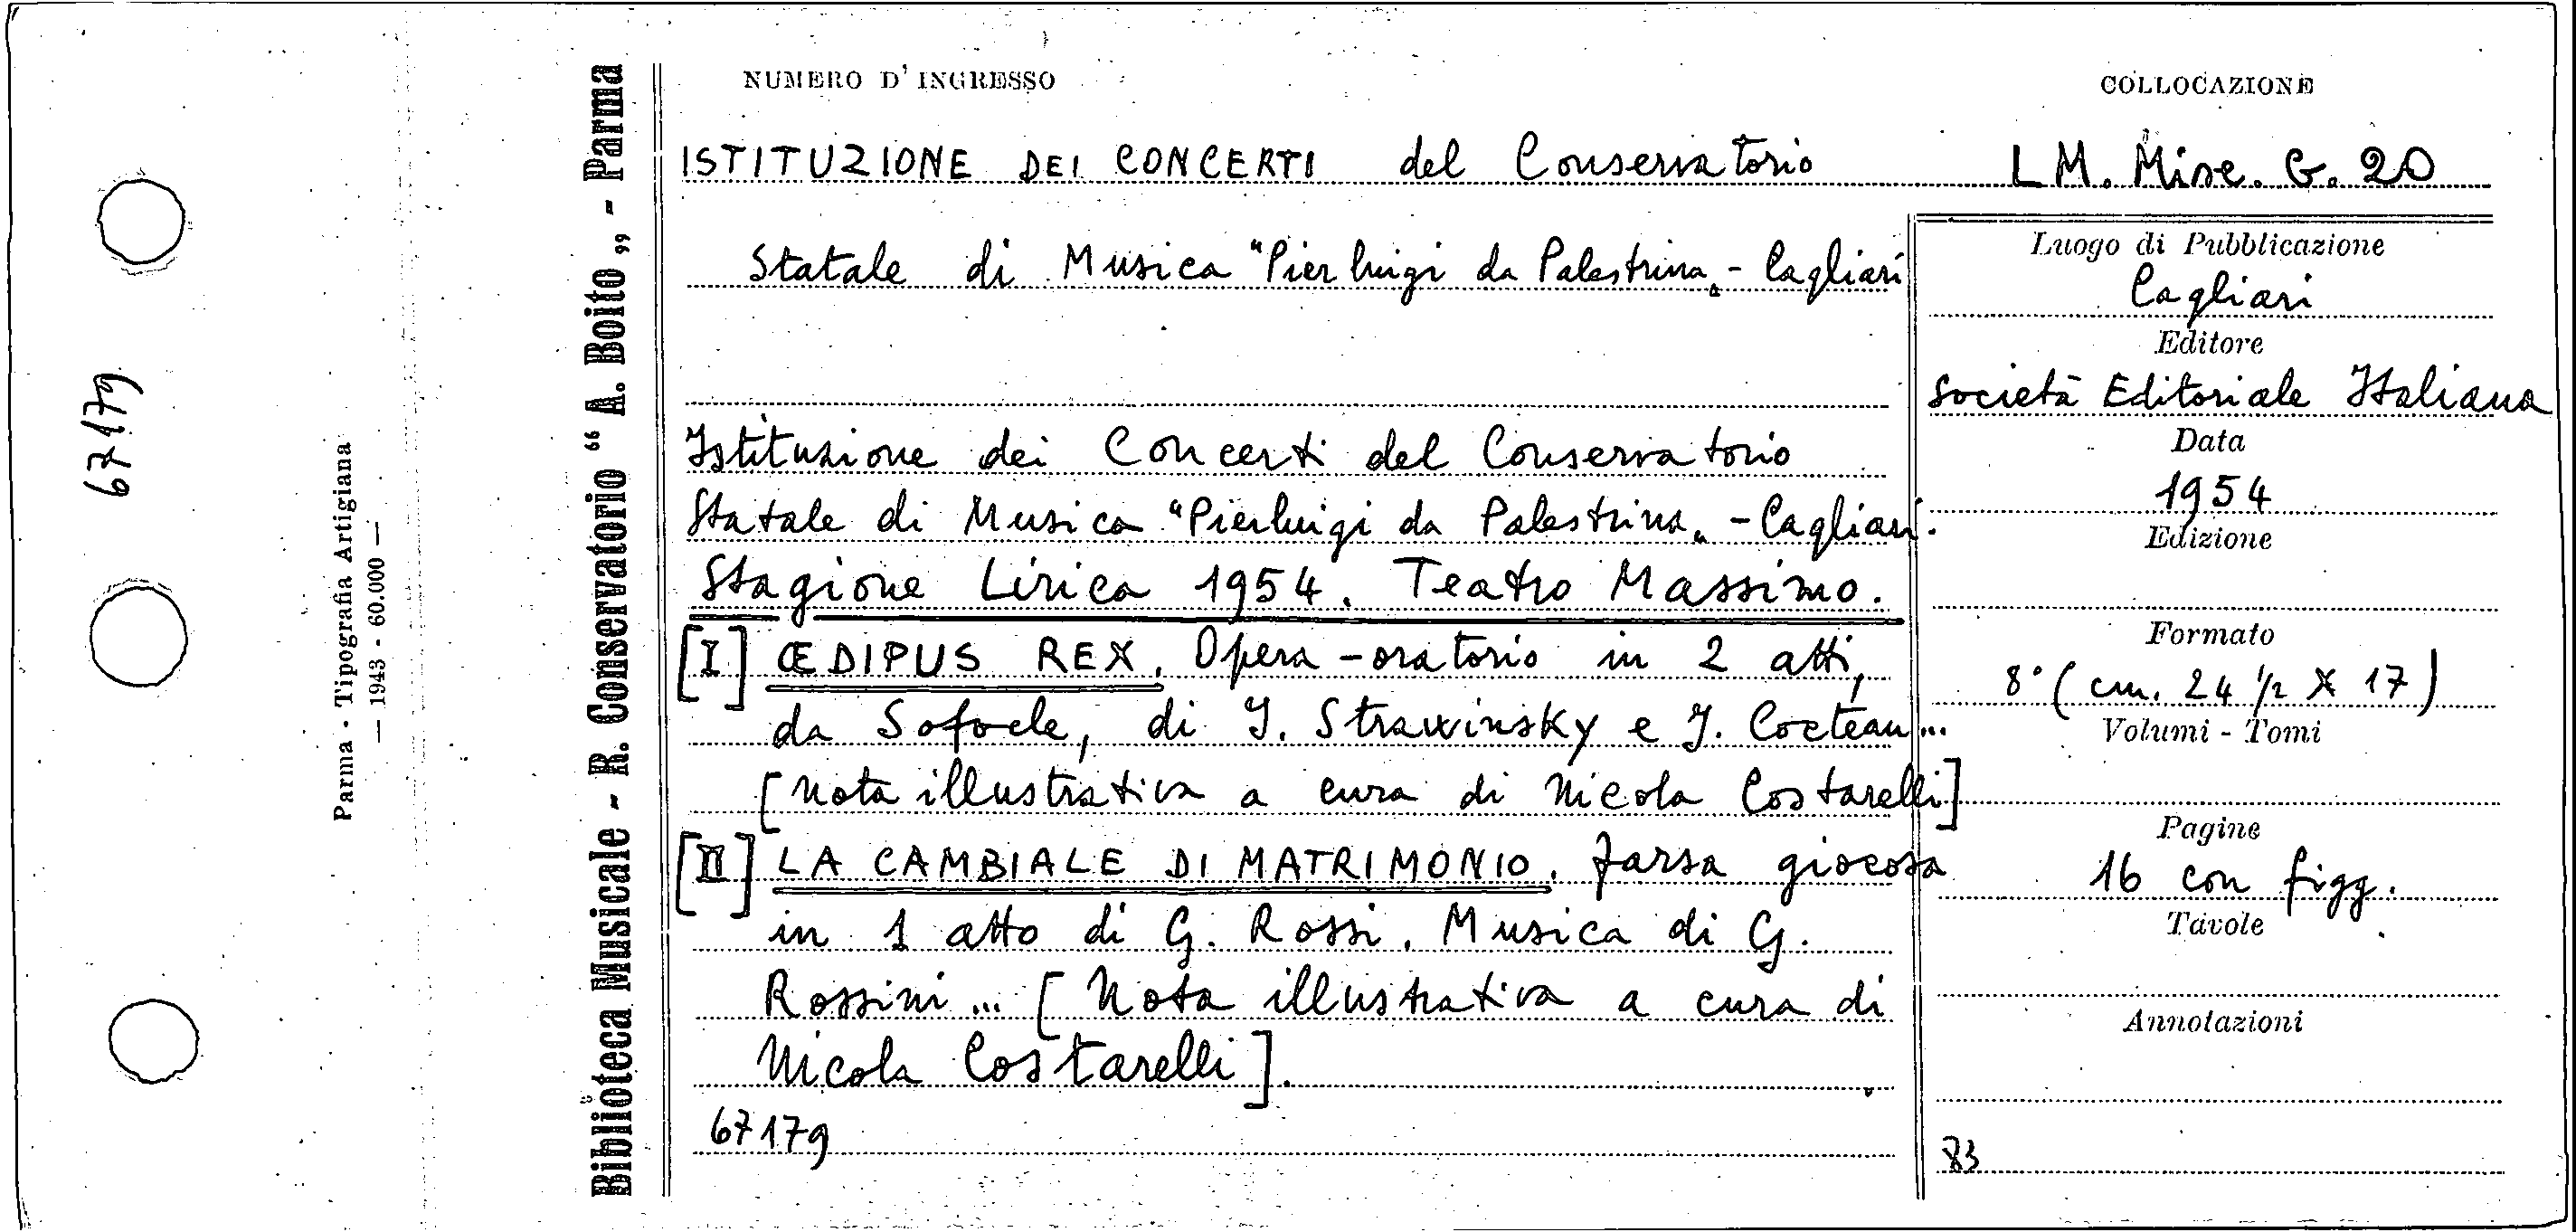 67179
Parma - Tipografia Artigiana
— 1943 - 60.000 —
Biblioteca Musicale - R. Conservatorio “ A. Boito „ - Parma
NUMERO D'INGRESSO
COLLOCAZIONE
ISTITUZIONE DEI CONCERTI del Conservatorio
LM. Misc. G. 20
Statale di Musica "Pierluigi da Palestrina„ - Cagliari
Istituzione dei Concerti del Conservatorio
Statale di Musica "Pierluigi da Palestrina„ - Cagliari.
Stagione Lirica 1954. Teatro Massimo.
[I] ŒDIPUS REX. Opera-oratorio in 2 atti,
da Sofocle, di I. Strawinsky e J. Cocteau...
[Nota illustrativa a cura di Nicola Costarelli]
[II] LA CAMBIALE DI MATRIMONIO. Farsa giocosa
in 1 atto di G. Rossi. Musica di G.
Rossini... [Nota illustrativa a cura di
Nicola Costarelli].
67179
Luogo di Pubblicazione
Cagliari
Editore
Società Editoriale Italiana
Data
1954
Edizione
Formato
8° (cm. 24 1/2 X 17)
Volumi - Tomi
Pagine
16 con figg.
Tavole
Annotazioni
83